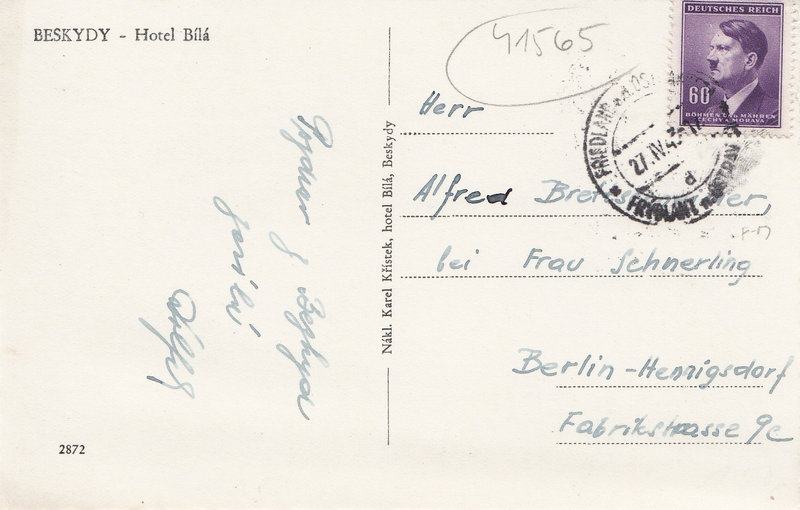 BESKYDY - Hotel Bílá
41565
DEUTSCHES REICH
60
BÖHMEN UND MÄHREN
ČECHY A MORAVA
FRIEDLAND
27.IV.43
d
FRYDLANT
Herr
Alfred
bei Frau Schnerling
Berlin-Hennigsdorf
Fabrikstrasse 9c
Nákl. Karel Křístek, hotel Bílá, Beskydy
Pozdrav z Beskyd
2872